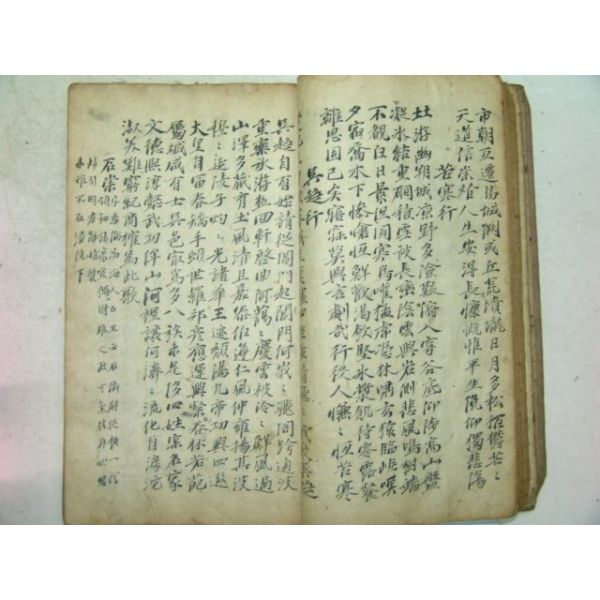 市朝互遷易城闕或丘荒墳壠日月多松栢鬱芒〻
天道信崇替人生安得長慷慨惟平生俛仰獨悲傷
苦寒行
北游幽朔城凉野多險艱俯入穹谷底仰陟高山盤
凝氷結重磵積雪被長巒陰雲興岩側悲風鳴樹端
不覩白日景但聞寒鳥喧猛虎憑林嘯玄猿臨岸嘆
夕宿喬木下慘愴恒鮮歡渴飲堅氷漿飢待零露餐
離思固已矣寤寐莫與言劇哉行役人慊〻恒苦寒
吳趍行
吳趍自有始請從閶門起閶門何峩〻飛閣跨通波
重欒承游極回軒啓曲阿藹〻慶雲被泠〻鮮風過
山澤多藏育土風清且嘉泰伯導仁風仲雍揚其波
穆〻延陵子灼〻光諸華王迹頹陽九帝功興四遐
大皇自富春矯手頓世羅邦彦應運興粲若春林葩
屬城咸有士吳邑最爲多八族未足侈四姓實名家
文德熙淳懿武功侔山河禮讓何濟〻流化自滂沱
淑美難窮紀商攉爲此歌
石崇